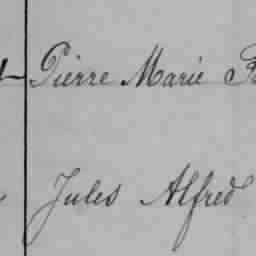 Pierre Marie
Jules Alfred